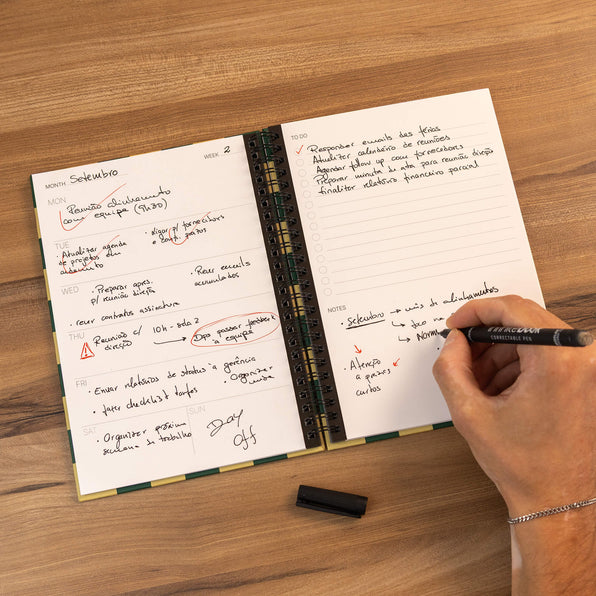 MONTH Setembro WEEK 2
MON
Reunião alinhamento
com equipe (9h30)
TUE
• Atualizar agenda
de projetos em
andamento
• Ligar p/ fornecedores
e conf. prazos
WED
• Preparar apres.
p/ reunião direção
• Rever emails
acumulados
• rever contratos assinatura
THU
Reunião c/
direção
10h - sala 2
→ Dps passar
à equipe
FRI
• Enviar relatórios de status à gerência
• fazer checklist
• Organizar
SAT
• Organizar próxima
semana de trabalho
SUN
Day
Off
TO DO
Responder emails das férias
Atualizar calendário de reuniões
Agendar follow up com fornecedores
Preparar minuta de ata para reunião direção
finalizar relatório financeiro parcial
NOTES
• Setembro → mês de alinhamentos
→ foco
→
• Atenção
a prazos
curtos
CORRECTABLE PEN